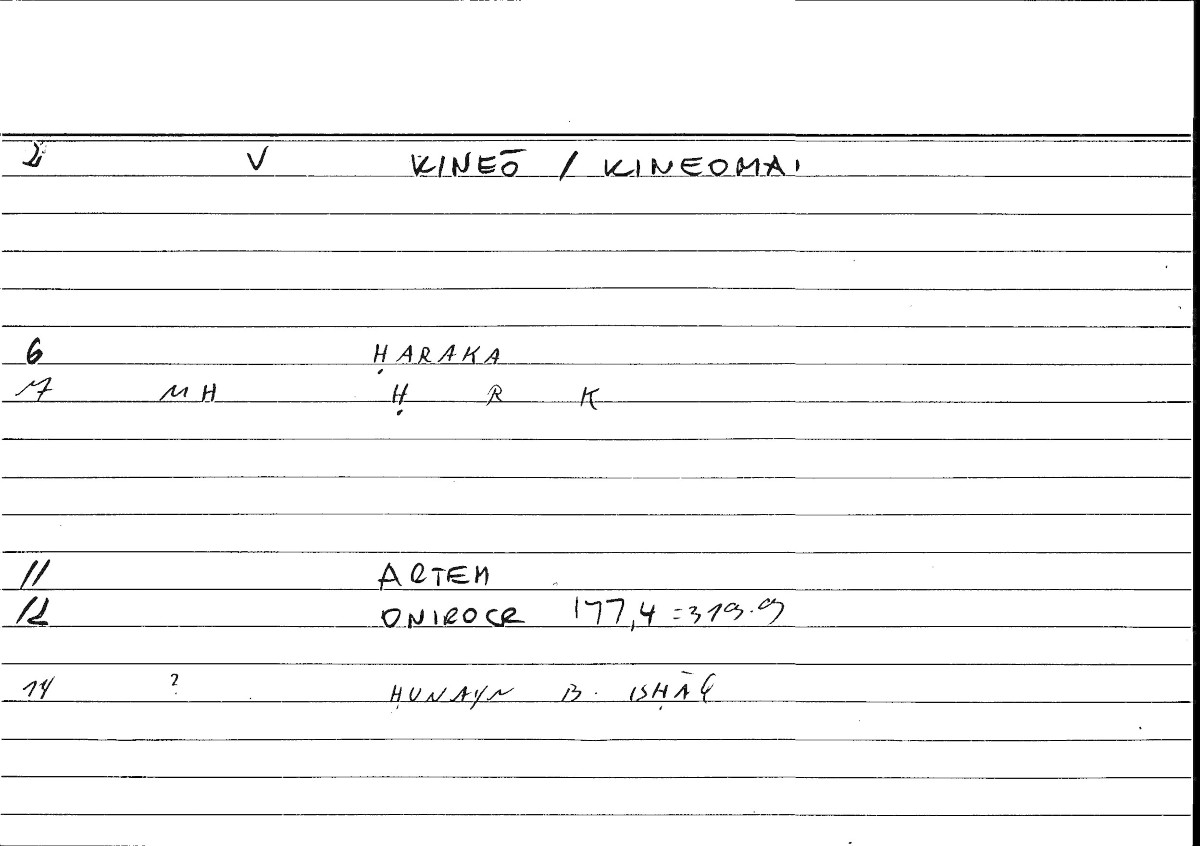 2 V KINEŌ / KINEOMAI
6 ḤARAKA
7 MH Ḥ R K
11 ARTEM
12 ONIROCR 177,4 = 319.9
14 ? ḤUNAYN B. ISḤĀQ